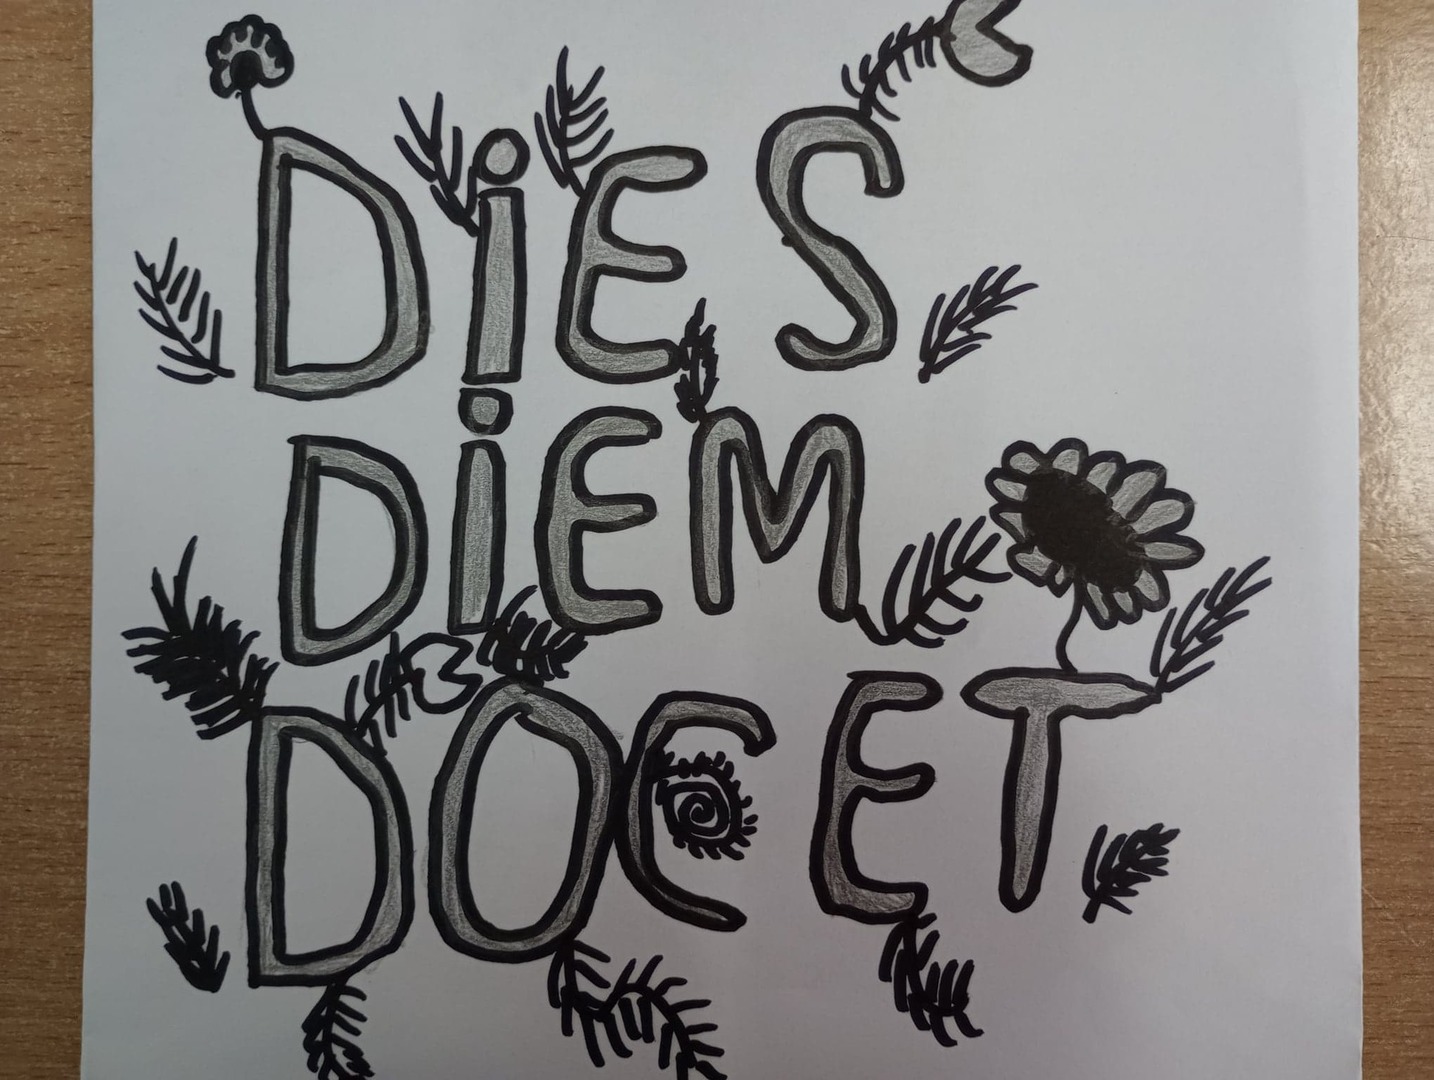 DiES
DiEM
DOCET